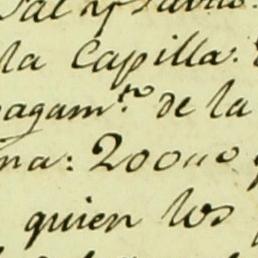 la Capilla.
pagam.to de la
na: 200"0
quien los